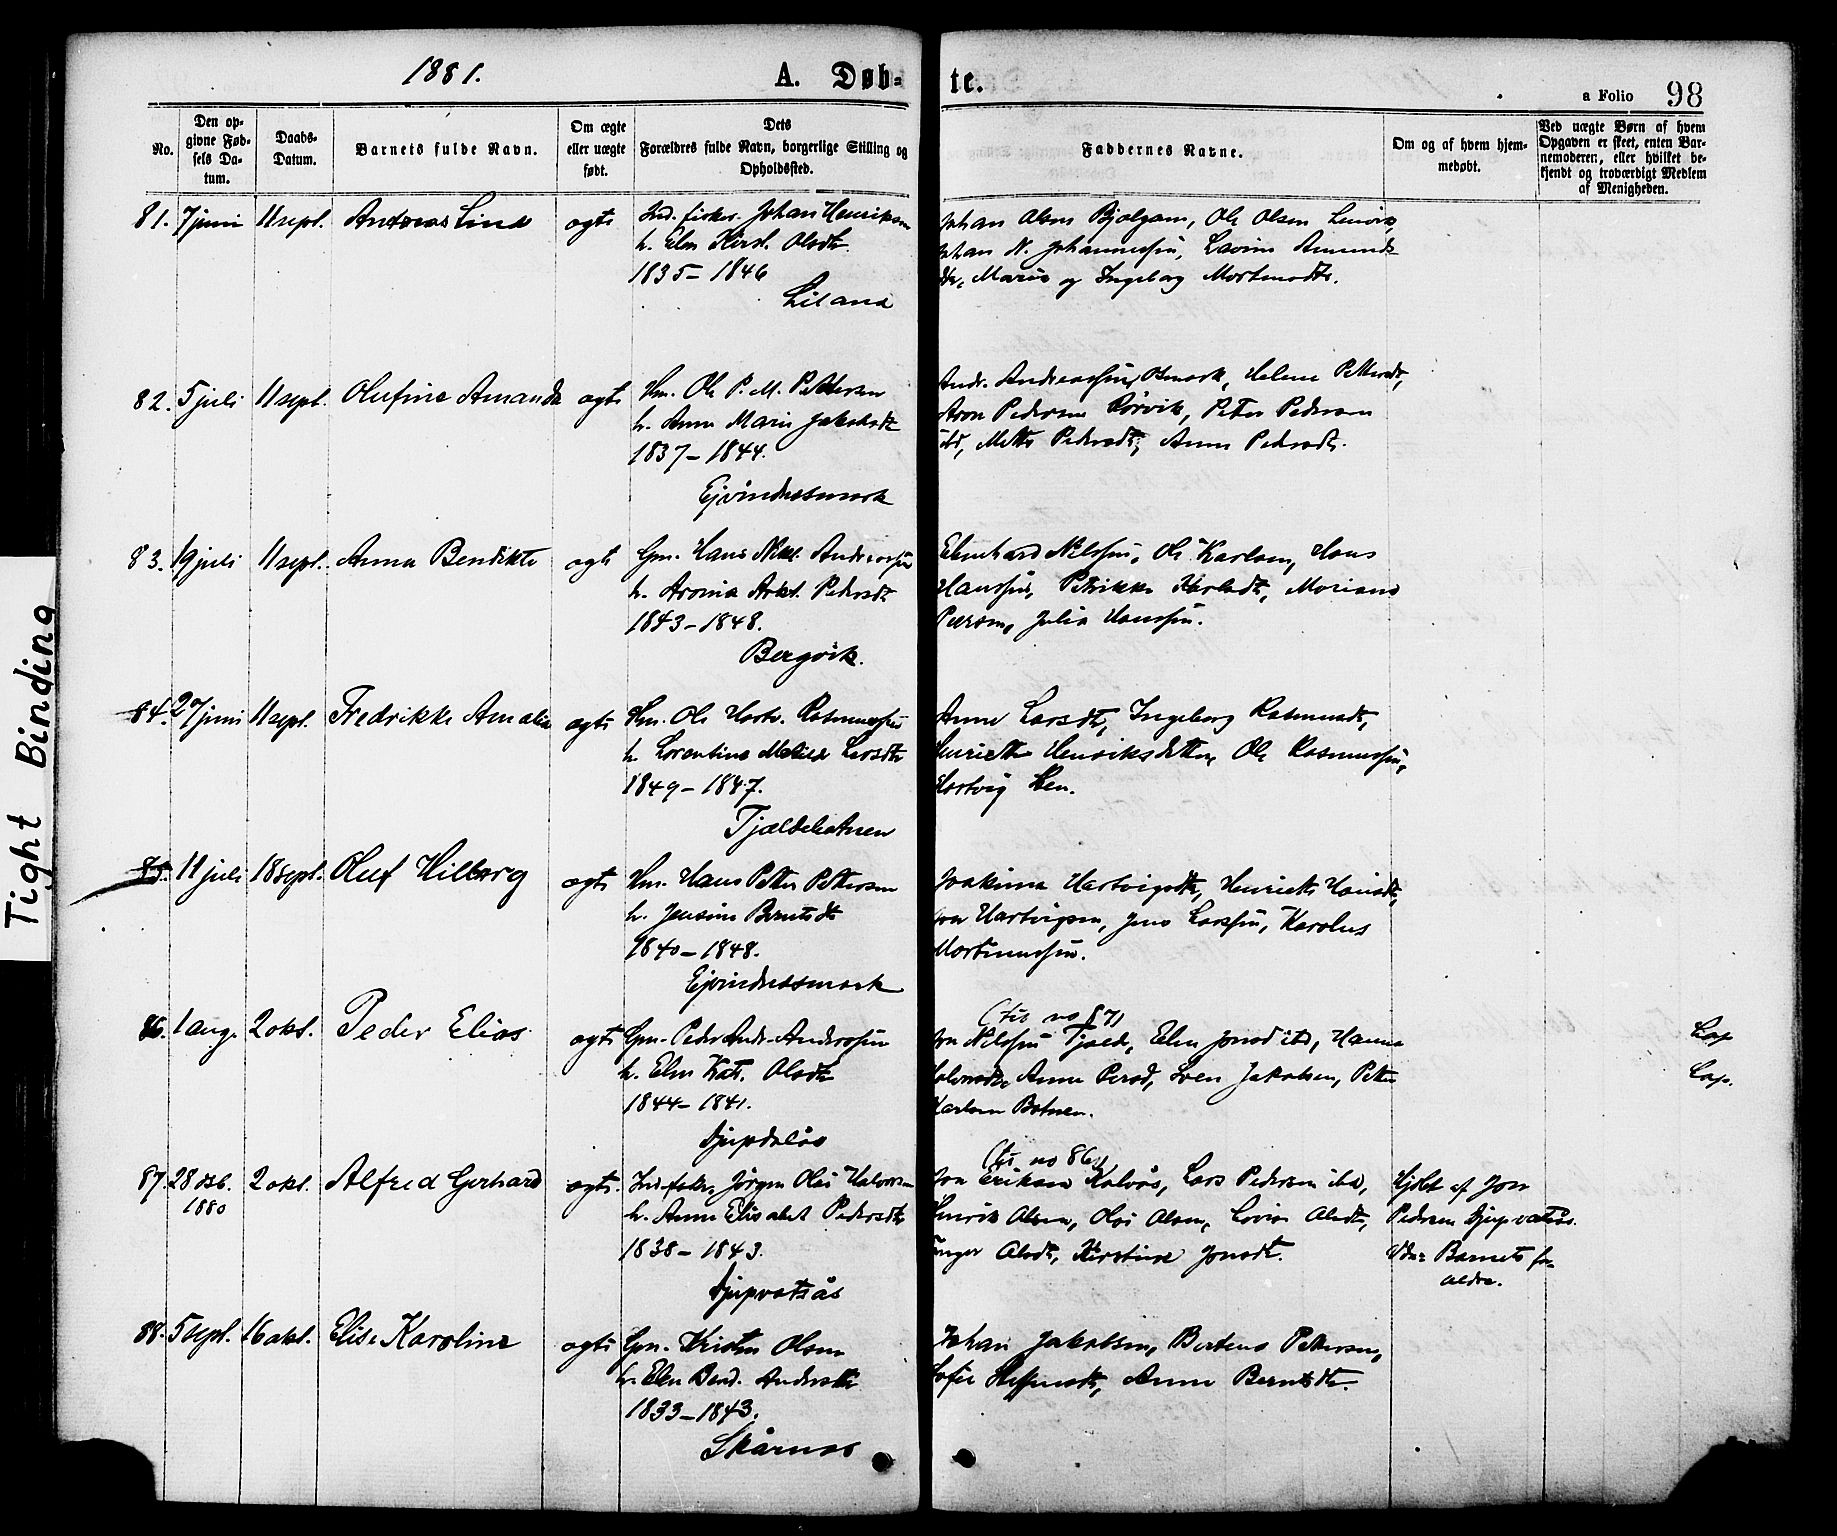 1881.
A. Døb-
te.
a Folio 98
No.
Den op-
givne Fød-
sels Da-
tum.
Daabs-
Datum.
Barnets fulde Navn.
Om ægte
eller uægte
født.
Dets
Forældres fulde Navn, borgerlige Stilling og
Opholdssted.
Faddernes Navne.
Om og af hvem hjem-
medøbt.
Ved uægte Børn af hvem
Opgaven er skeet, enten Bar-
nemoderen, eller hvilket be-
kjendt og troværdigt Medlem
af Menigheden.
Tight Binding
81. 7 juni 11 sept. Andreas Lind ægte
Johan Henriksen
h. Elen Kirst. Olsdtr
1835 – 1846
Liland
Johan Olsen Ole Olsen Lenvik,
Johan N. Johannessen, Lavine Amunds
dtr, Marie og Ingeborg
82. 5 juli 11 sept. Olufine Amanda ægte
Hm. Ole P. M. Pettersen
h. Anne Marie Jakobsdtr
1837 – 1844.
Ejvindnesmark
Andr. Andreassen, Helene Pettersdtr,
Aron Pedersen Rørvik, Peter Pedersen
ibd, Mette Pedersdtr, Anne Pedersdtr.
83. 19 juli 11 sept. Anna Bendikte ægte
Gm. Hans Nikl. Andreassen
h. Pedersdtr
1843 – 1848.
Bergvik.
Edenhard Nilssen, Ole Karlsen, Hans
Hanssen, Petrikke Karlsdtr, Mariane
Peersen, Julia Hanssen.
84. 27 juni 11 sept. Fredrikke Amalia ægte
Hm. Ole Hartv. Rasmussen
h. Lorentine Larsdtr
1849 – 1847.
Tjældebotnen
Anne Larsdtr, Ingeborg Rasmusdtr,
Henriette Henriksdatter, Ole Rasmussen,
Hartvig
85. 11 juli 18 sept. Oluf Hilberg ægte
Hm. Hans Petter Pettersen
h. Jensine Berntsdtr
1840 – 1848.
Ejvindnesmark
Joakima Hartvigsdtr, Henriette Hansdtr,
Hartvigsen, Jens Larssen, Karolus
Mortinussen.
86. 1 aug. 2 okt. Peder Elias ægte
Gm. Peder Andr. Anderssen
h. Elen Kat. Olsdtr
1844 – 1841.
Djupdalås
(til no 87)
Jon Nilssen Tjæld, Elen Jonsd ibd, Hanna
Anne Persd, Sven Jakobsen, Petter
Karlsen Botnen.
Lap.
Lap.
87. 28 dsb. 1880 2 okt. Alfred Gerhard ægte
Jørgen Olai Halvorsen
h. Anne Elisabet Pedersdtr
1838 – 1843.
Djupvatsås
(til no 86)
Jon Eriksen Kalvås, Lars Pedersen ibd,
Henrik Olsen, Olai Olsen, Lovise Olsdtr,
Inger Olsdtr, Kirstine Jonsdtr.
Hjdbt af Jon
Pedersen Djupvatsås.
Vidn: Barnets for-
ældre.
88. 5 sept. 16 okt. Elise Karoline ægte
Gm. Kristen Olsen
h. Elen Bend. Andersdtr
1833 – 1843.
Skårnes
Johan Jakobsen, Berteus Pettersen,
Sofie Anne Berntsdtr.